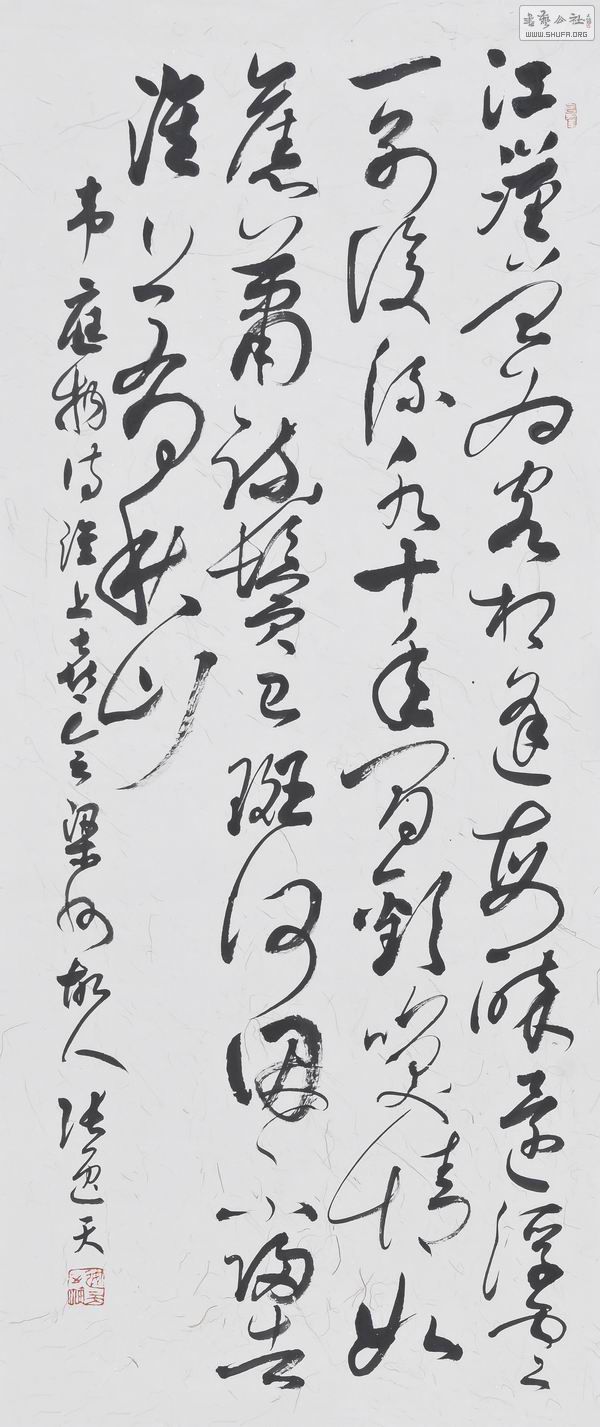 書藝公社
WWW.SHUFA.ORG
江漢曾為客相逢每醉還浮雲
一別後流水十年間歡笑情如
舊蕭疏鬢已斑何因不歸去
淮上有秋山
韋應物詩淮上喜會梁州故人 張逸天